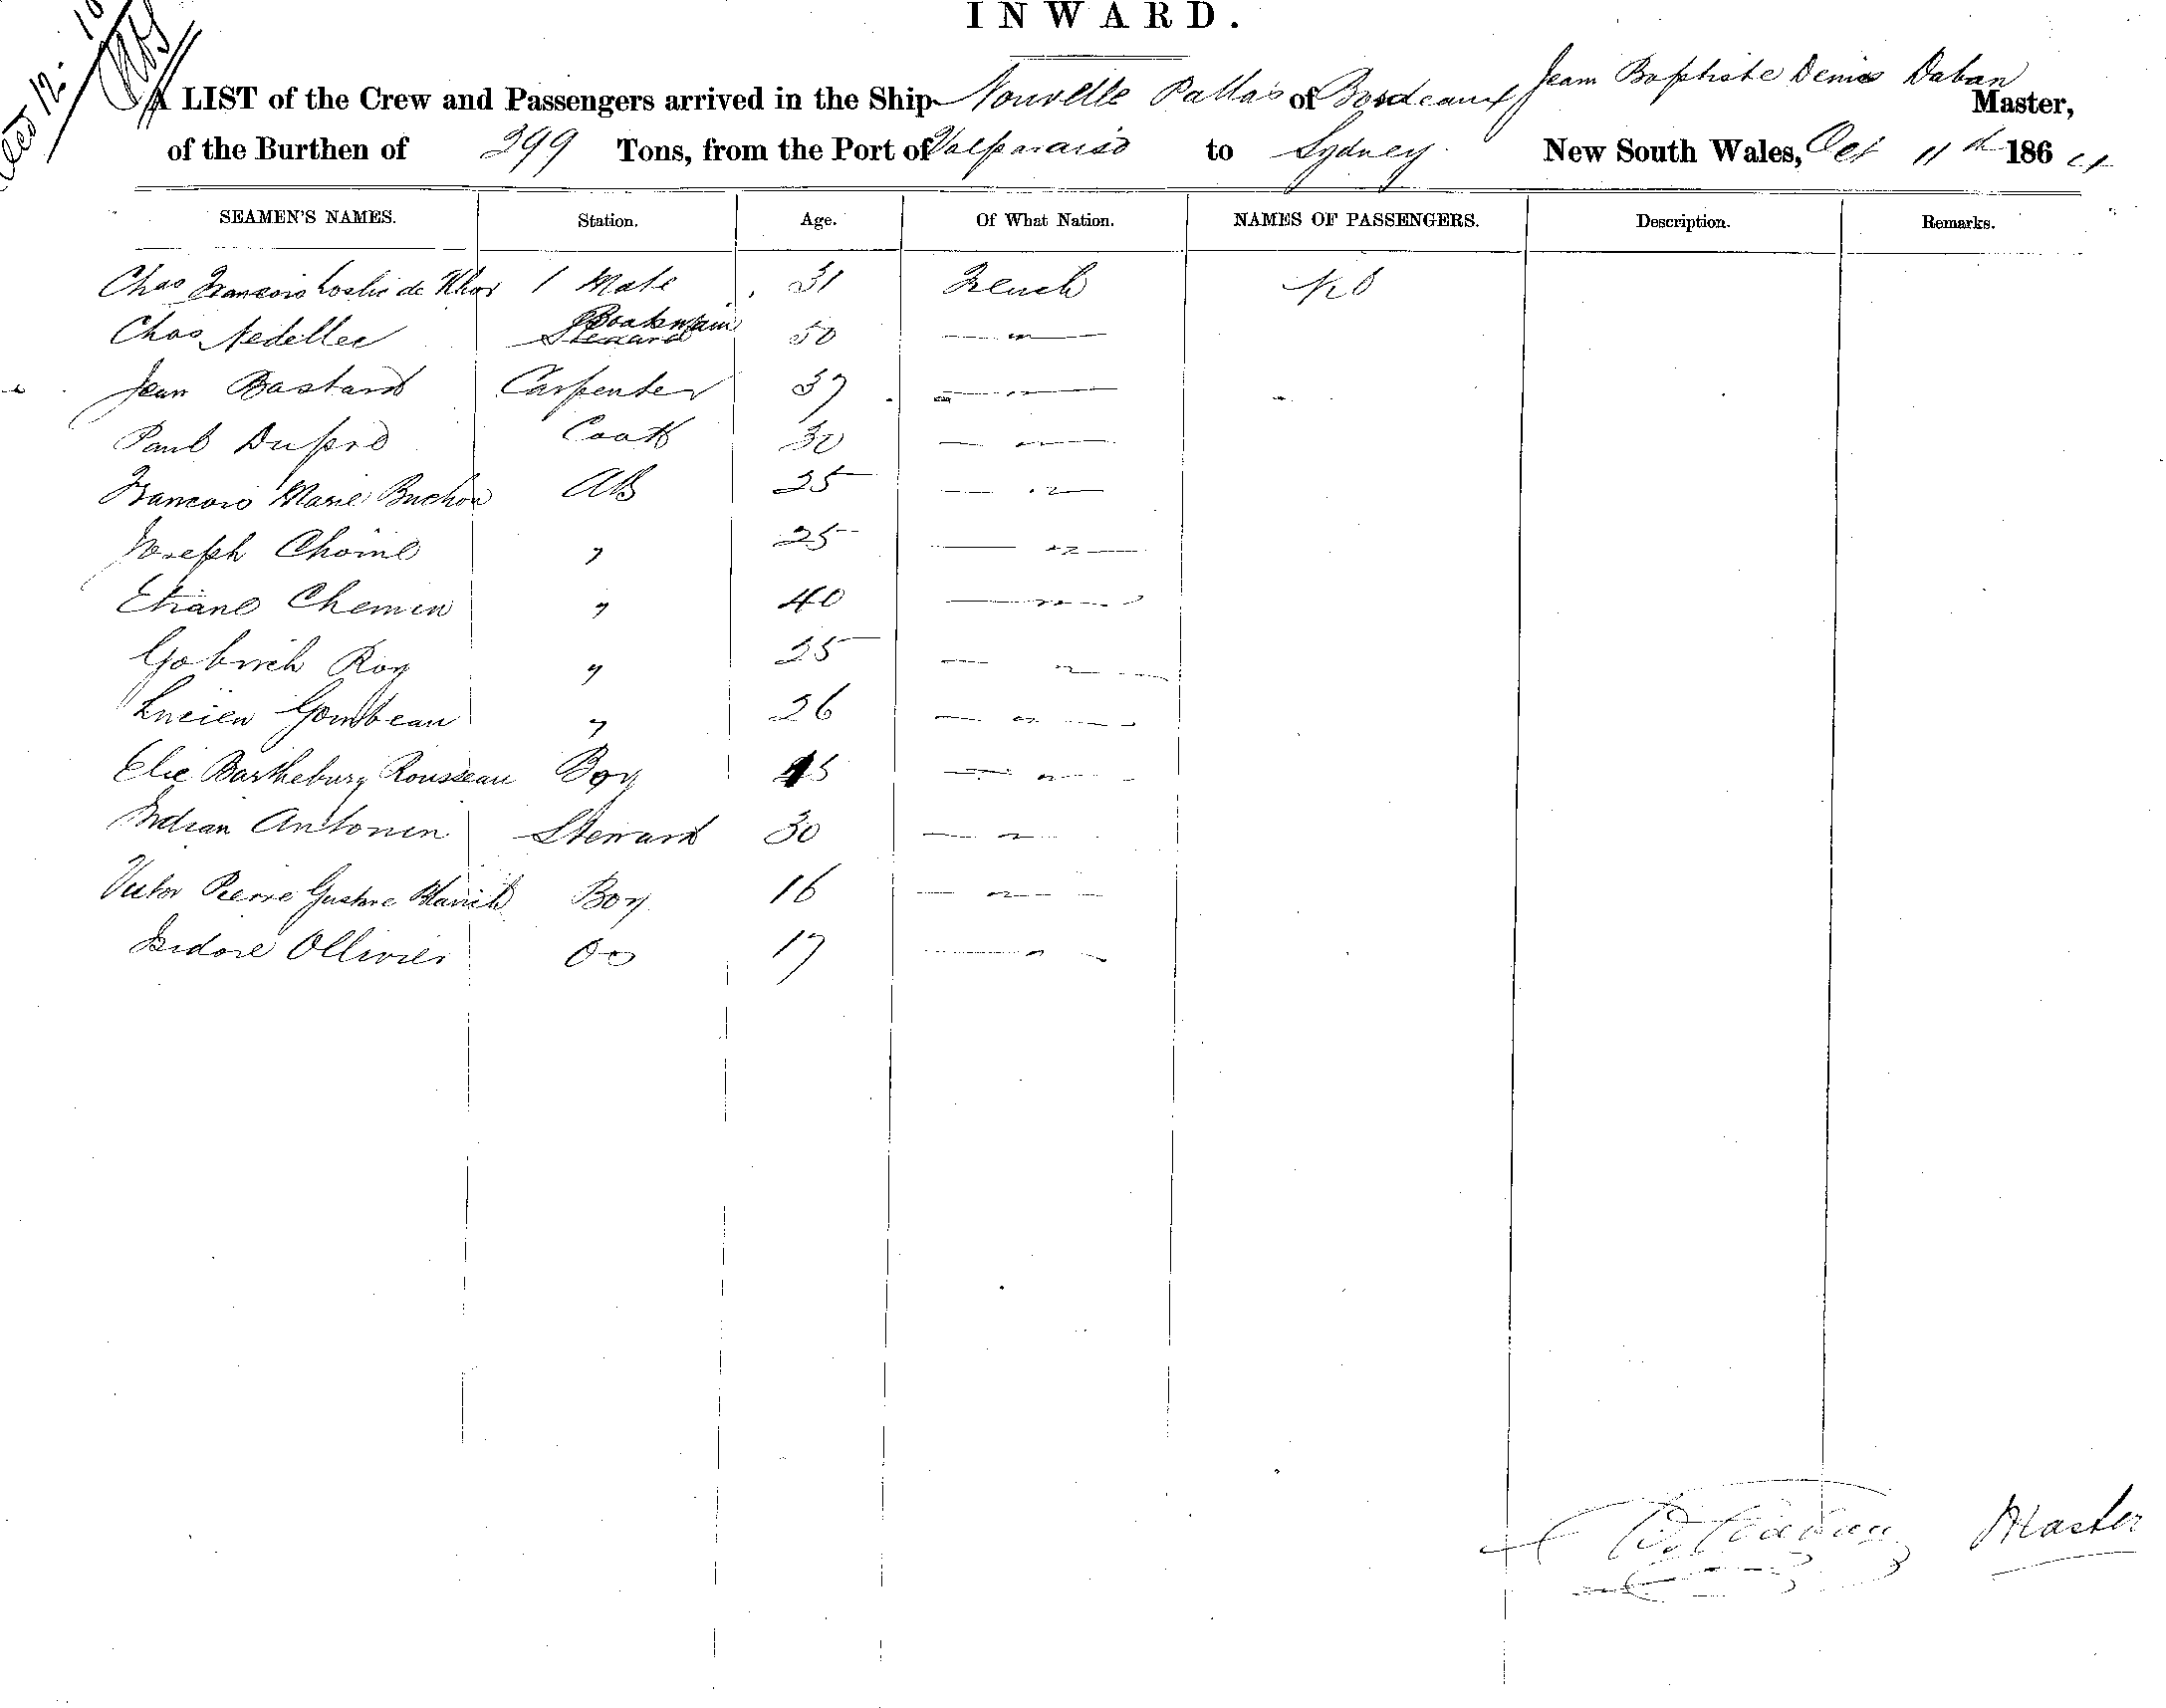 INWARD.
A LIST of the Crew and Passengers arrived in the Ship Nouvelle Pallas of Bordeaux Jean Baptiste Denis Daban Master,
of the Burthen of 399 Tons, from the Port of Valparaiso to Sydney New South Wales, Oct 11th 1864
SEAMEN'S NAMES. Station. Age. Of What Nation. NAMES OF PASSENGERS. Description. Remarks.
Chas Francois de 1 Mate 31 French No
Chas Nedellec Boatswain Steward 50 — " —
Jean Bastard Carpenter 37 — " —
Paul Dupré Cook 30 — " —
Francois Marie Buchon AB 25 — " —
Joseph Choine " 25 — " —
Chemin " 40 — " —
Roy " 25 — " —
Lucien Gombeau " 26 — " —
Elie Rousseau Boy 15 — " —
Antonin Steward 30 — " —
Victor Pierre Gustave Boy 16 — " —
Isidore Ollivier Do 17 — " —
Master